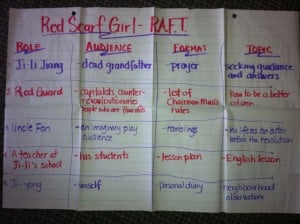 Red Scarf Girl - R.A.F.T.
ROLE AUDIENCE FORMAT TOPIC
1. Ji-Li Jiang dead grandfather prayer seeking guidance and answers
2. Red Guard capitalists, counter-revolutionaries, people who are four olds list of Chairman Mao's rules how to be a better citizen
3. Uncle Fan an imaginary play audience ramblings his life as an actor before the revolution
4. A teacher at Ji-Li's school his students lesson plan English lesson
5. Ji-yong himself personal diary neighbourhood